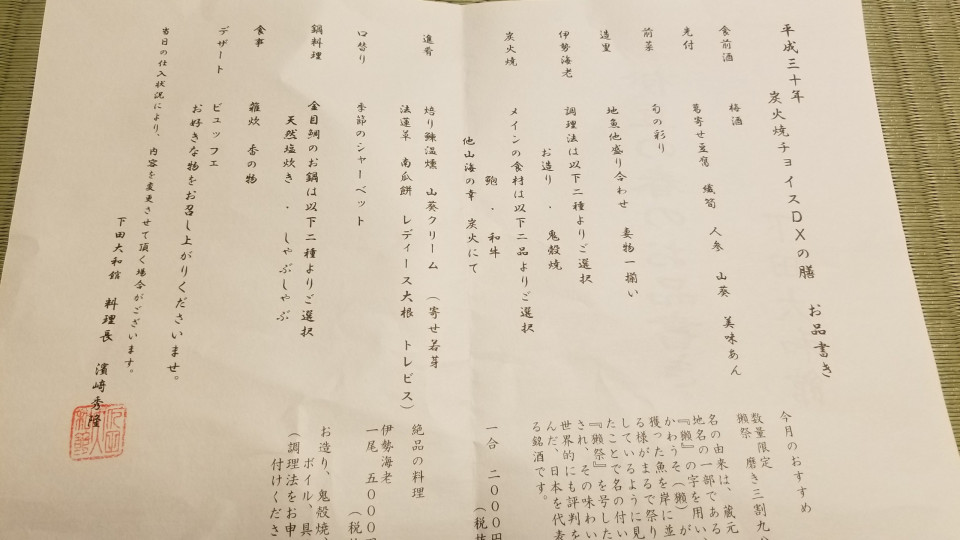 平成三十年
炭火焼チョイスDXの膳　お品書き
食前酒　梅酒
先付　葛寄せ豆腐　繊筍　人参　山葵　美味あん
前菜　旬の彩り
造里　地魚他盛り合わせ　妻物一揃い
伊勢海老　調理法は以下二種よりご選択
お造り・鬼殻焼
炭火焼　メインの食材は以下二品よりご選択
鮑・和牛
他山海の幸　炭火にて
進肴　焙り鰊温燻　山葵クリーム　（寄せ若芽
法蓮草　南瓜餅　レディース大根　トレビス）
口替り　季節のシャーベット
鍋料理　金目鯛のお鍋は以下二種よりご選択
天然塩炊き・しゃぶしゃぶ
食事　雑炊　香の物
デザート　ビュッフェ
お好きな物をお召し上がりくださいませ。
当日の仕入状況により、内容を変更させて頂く場合がございます。
下田大和館　料理長　濱崎秀隆
今月のおすすめ
数量限定
獺祭　磨き三割九
名の由来は、蔵元
地名の一部である
『獺』の字を用い、
かわうそ（獺）が
獲った魚を岸に並
る様がまるで祭り
しているように見
たことで名の付い
『獺祭』を号した
され、その味わい
世界的にも評判を
んだ、日本を代表
る銘酒です。
一合　二〇〇〇円
（税抜
絶品の料理
伊勢海老
一尾　五〇〇〇円
（税抜
お造り、鬼殻焼、
ボイル、具
（調理法をお申
付けくださ